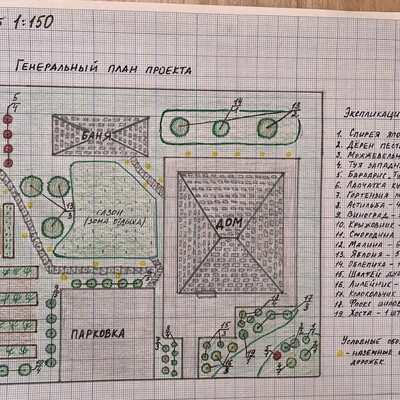 1:150
ГЕНЕРАЛЬНЫЙ ПЛАН ПРОЕКТА
БАНЯ
ГАЗОН
(ЗОНА ОТДЫХА)
ДОМ
ПАРКОВКА
ЭКСПЛИКАЦИ
1. СПИРЕЯ ЯПО
2. ДЕРЕН ПЕСТ
3. МОЖЖЕВЕЛЬ
4. ТУЯ ЗАПАДН
5. БАРБАРИС, ТУ
6. ЛАПЧАТКА КУ
7. ГОРТЕНЗИЯ М
8. АСТИЛЬБА - 4
9. ВИНОГРАД -
10. КРЫЖОВНИК -
11. СМОРОДИНА
12. МАЛИНА - 6
13. ЯБЛОНЯ - 5
14. ОБЛЕПИХА - 1
15. ШАЛФЕЙ ДУБ
16. ЛИЛЕЙНИК -
17. КОЛОКОЛЬЧИК
18. ФЛОКС ШИЛОВ
19. ХОСТА - 1 ШТ
УСЛОВНЫЕ ОБО
- НАЗЕМНЫЕ С
ДОРОЖЕК.